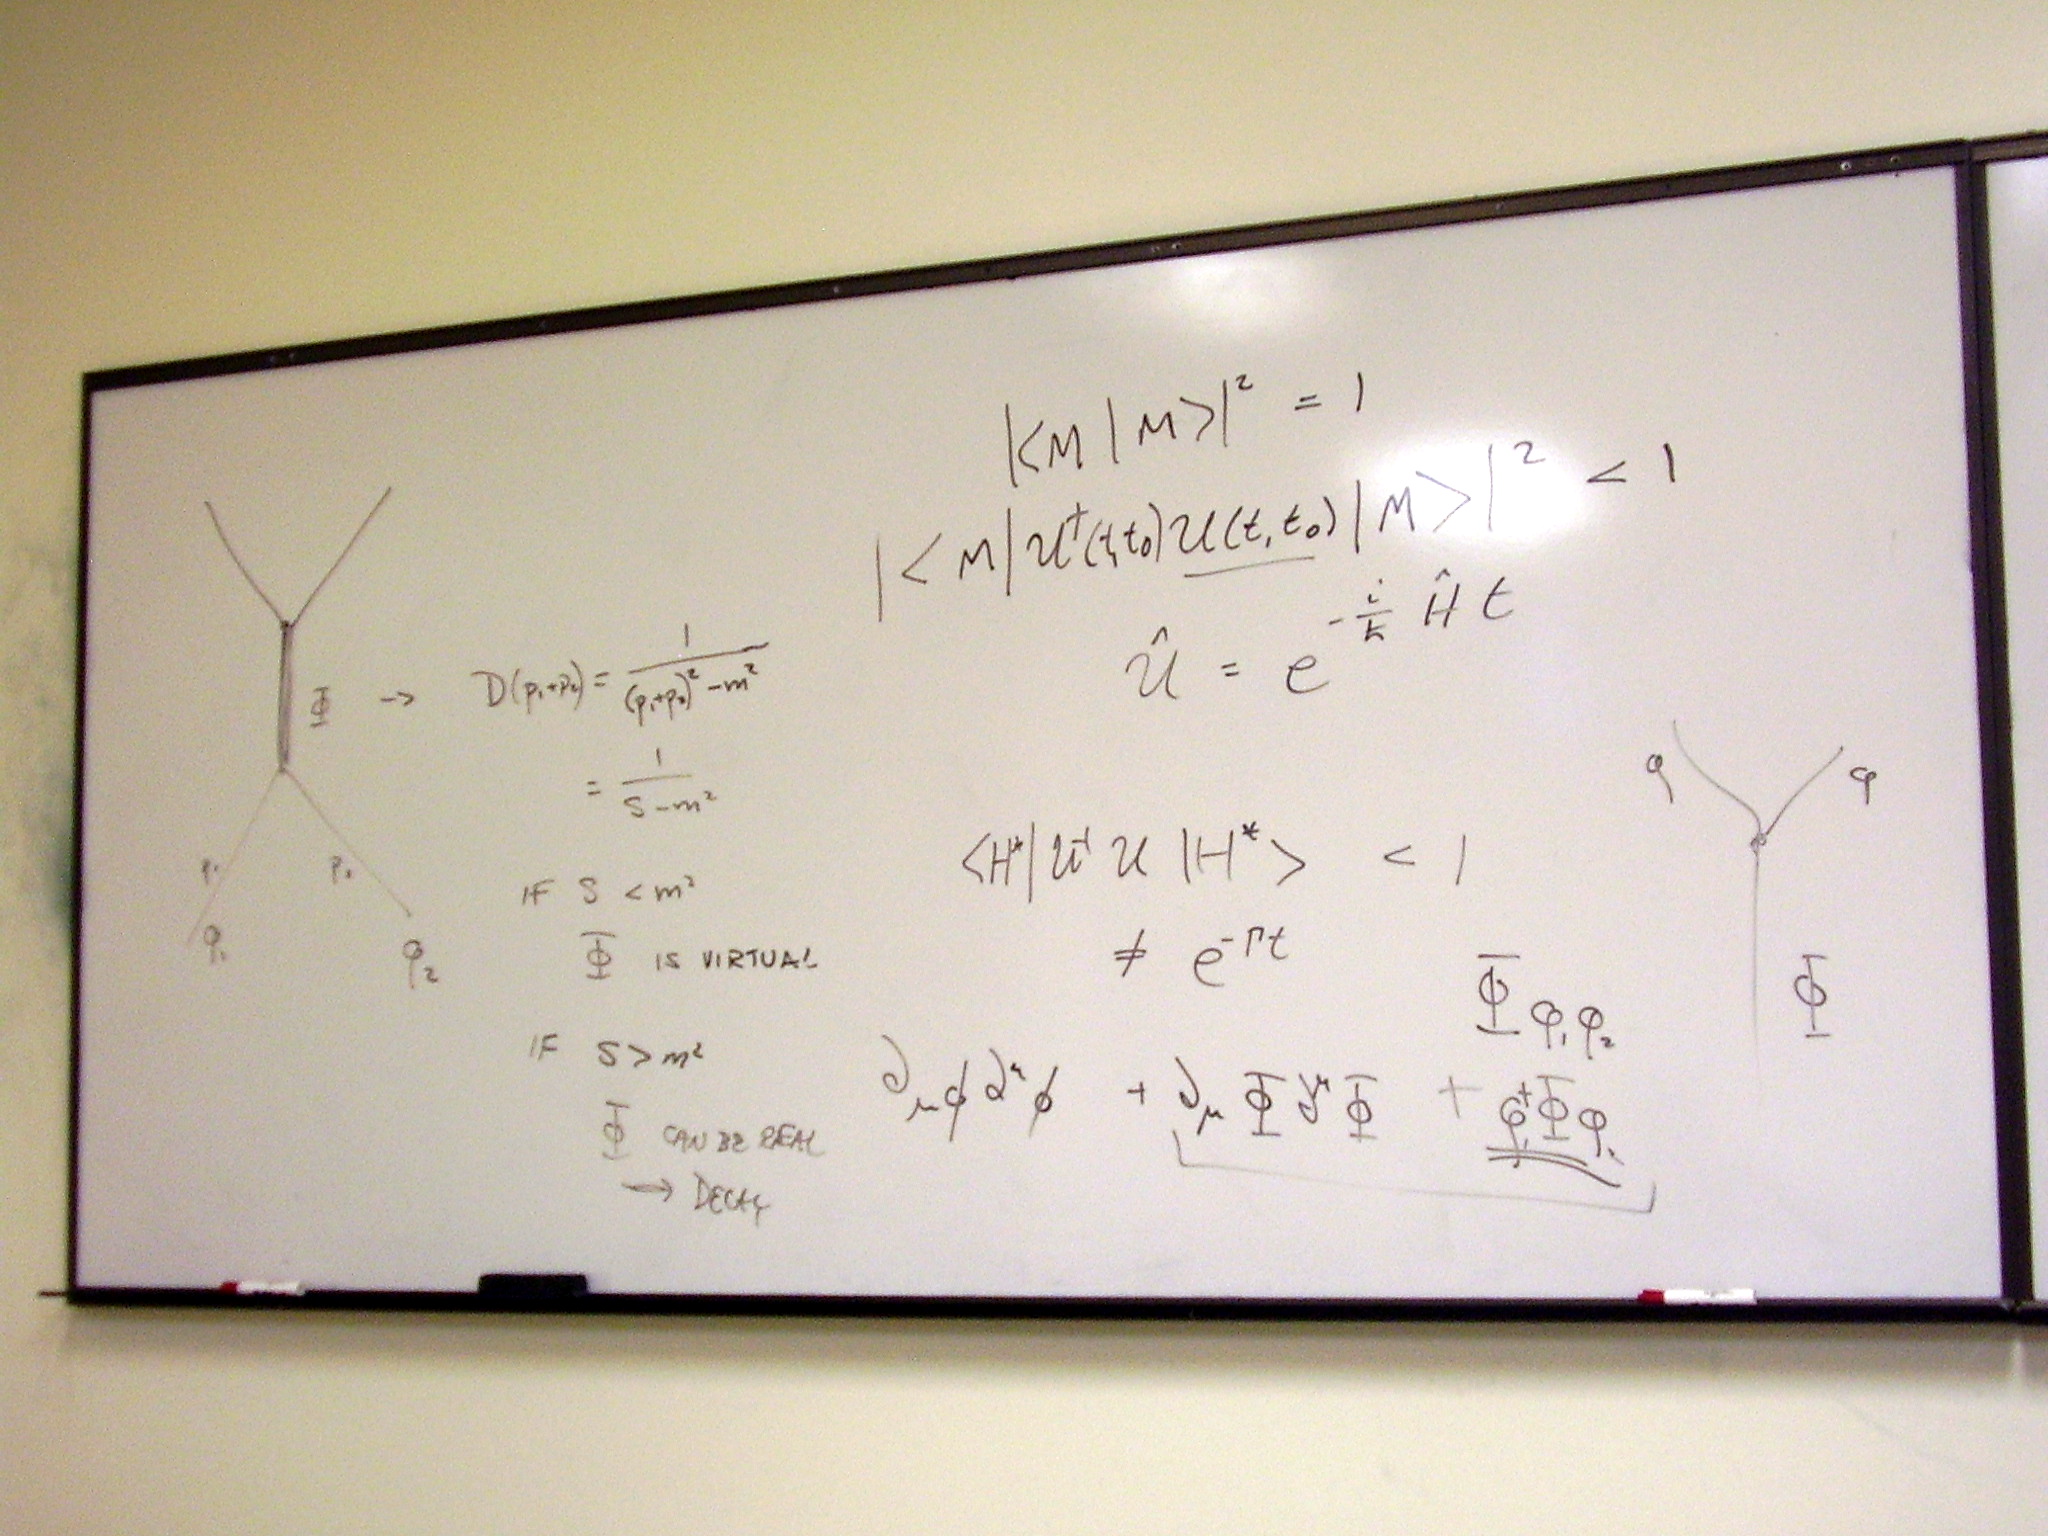 Φ → D(p₁+p₂) = 1/((p₁+p₂)² - m²)
= 1/(S - m²)
p₁ p₂
φ₁ φ₂
IF S < m²
Φ IS VIRTUAL
IF S > m²
Φ CAN BE REAL
→ DECAY
|<M|M>|² = 1
|<M|U†(t,t₀)U(t,t₀)|M>|² < 1
Û = e^(-i/ħ Ĥ t)
<H*|U†U|H*> < 1
≠ e^(-Γt)
Φφ₁φ₂
∂_μϕ∂^μϕ + ∂_μΦ∂^μΦ + φ₁†Φφ₁
φ φ
Φ